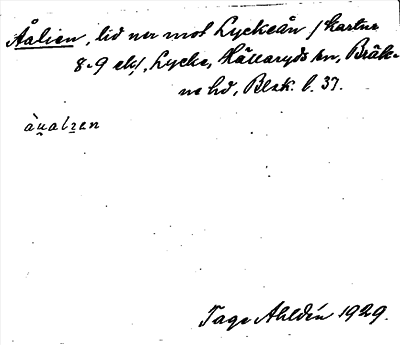 Åalien, lid ner mot Lyckeån / kartan
8-9 ek/, Lycke, Hällaryds sn, Bräk-
ne hd, Blek. l. 37.
àu̯alꞮen
Tage Ahldén 1929.